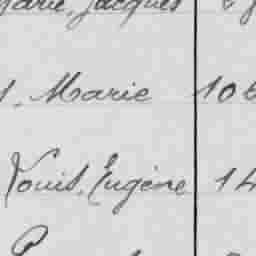 Marie, Jacques
Marie 106
Louis, Eugène 14